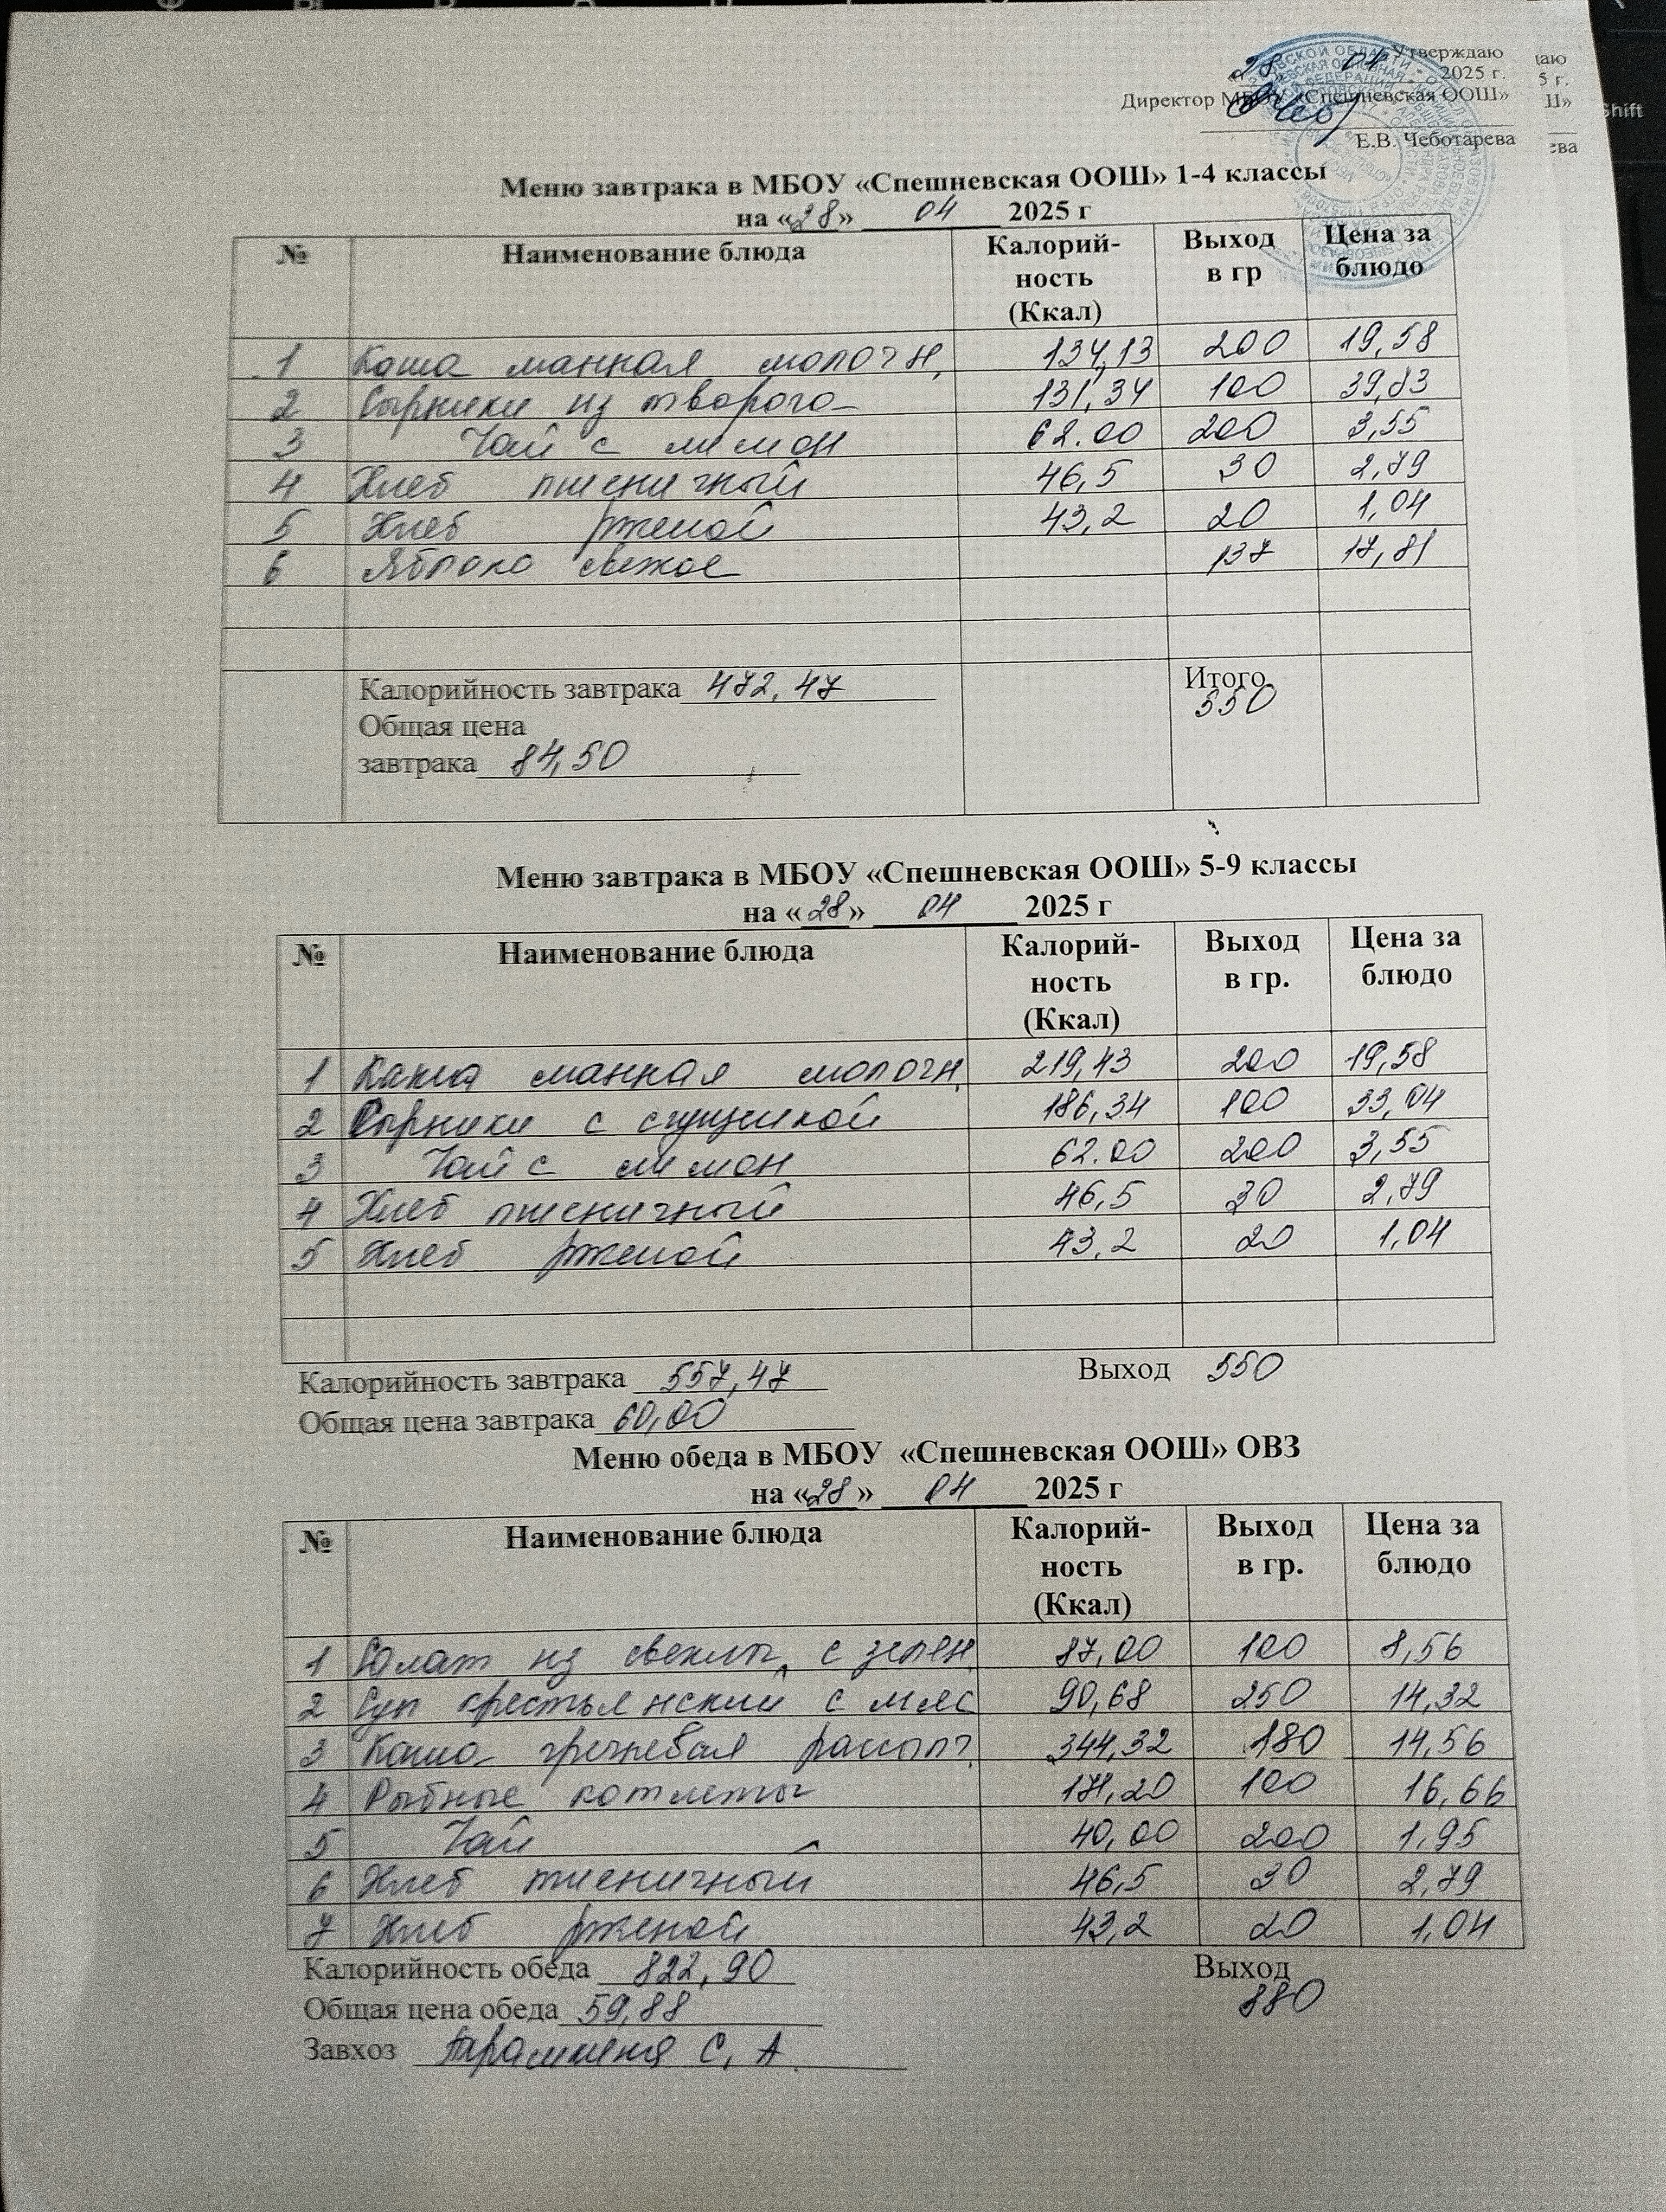 Утверждаю
28 04 2025 г.
Директор МБОУ «Спешневская ООШ»
Е.В. Чеботарева
Меню завтрака в МБОУ «Спешневская ООШ» 1-4 классы
на «28» 04 2025 г
№ Наименование блюда Калорий-ность (Ккал) Выход в гр Цена за блюдо
1 Каша манная молочн. 134,13 200 19,58
2 Сырники из творога 131,34 100 39,83
3 Чай с лимон 62.00 200 3,55
4 Хлеб пшеничный 46,5 30 2,79
5 Хлеб ржаной 43,2 20 1,04
6 Яблоко свежее 137 17,81
Калорийность завтрака 472,47 Итого
550
Общая цена
завтрака 84,50
Меню завтрака в МБОУ «Спешневская ООШ» 5-9 классы
на «28» 04 2025 г
№ Наименование блюда Калорий-ность (Ккал) Выход в гр. Цена за блюдо
1 Каша манная молочн. 219,43 200 19,58
2 Сырники с сгущенкой 186,34 100 33,04
3 Чай с лимон 62.00 200 3,55
4 Хлеб пшеничный 46,5 30 2,79
5 Хлеб ржаной 43,2 20 1,04
Калорийность завтрака 557,47 Выход 550
Общая цена завтрака 60,00
Меню обеда в МБОУ «Спешневская ООШ» ОВЗ
на «28» 04 2025 г
№ Наименование блюда Калорий-ность (Ккал) Выход в гр. Цена за блюдо
1 Салат из свеклы с зелен. 87,00 100 8,56
2 Суп крестьянский с мяс 90,68 250 14,32
3 Каша гречневая рассып. 344,32 180 14,56
4 Рыбные котлеты 171,20 100 16,66
5 Чай 40,00 200 1,95
6 Хлеб пшеничный 46,5 30 2,79
7 Хлеб ржаной 43,2 20 1,04
Калорийность обеда 822,90 Выход
880
Общая цена обеда 59,88
Завхоз С. А.